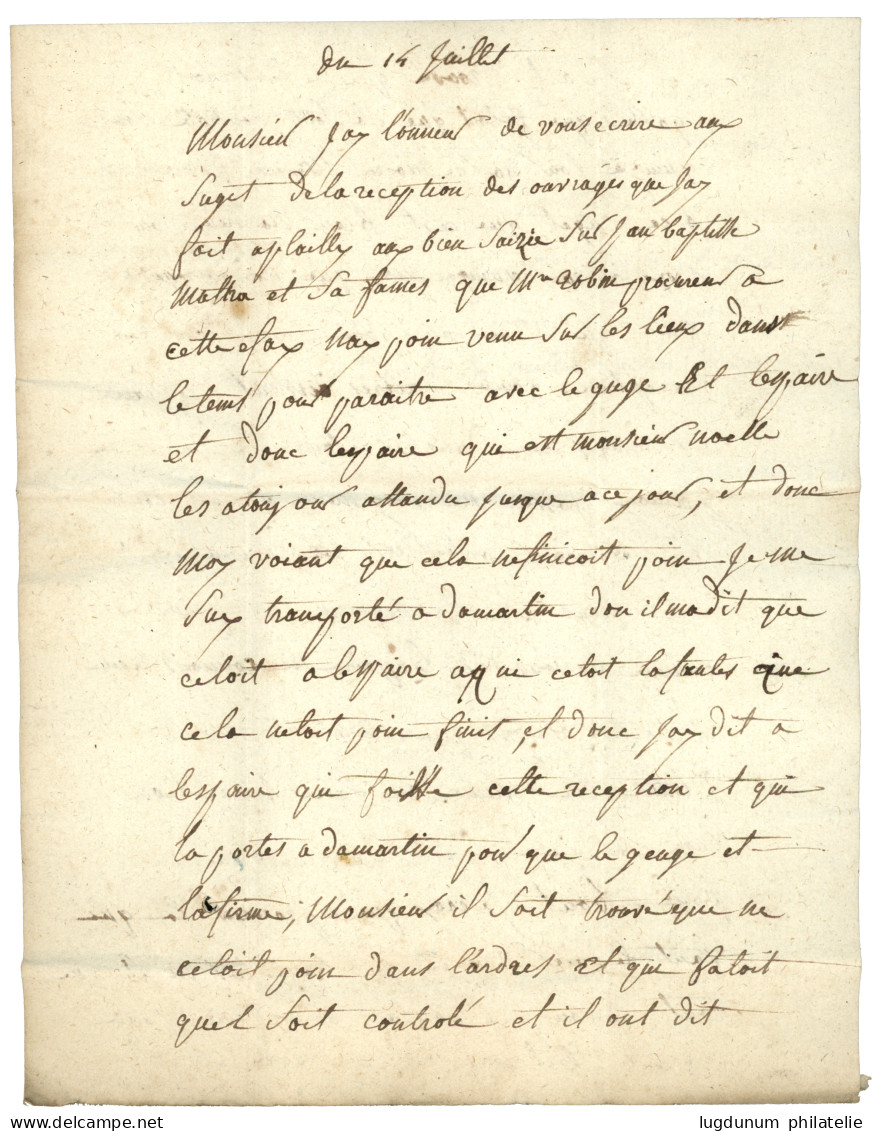 du 14 Juillet
Monsieur Jay l'onneur de vous ecrire aux
Suget de la reception des ouvrages que Jay
fait a plailly aux bien Saizie Sur Jan baptiste
Mattra et Sa fames que Mr Robin procureur a
cette efax nay poin venu Sur les lieux dans
le tems pour paraitre avec le guge Et lexpaire
et donc lexpaire qui est monsieur noelle
les a toujour attandu Jusque a ce jour, et donc
Moy voiant que cela nefinicoit poin Je me
Suy transporté a damartin don il ma dit que
cetoit a lexpaire a qui cetoit la fautes que
cela netoit poin finit, et donc Jay dit a
lexpaire qui faisse cette reception et qui
la portes a damartin pour que le geuge et
la firme; Monsieur il Soit trouvé que ne
cetoit poin dans l'ardres Et qui faloit
quel Soit controlé et il ont dit
lugdunum philatelie